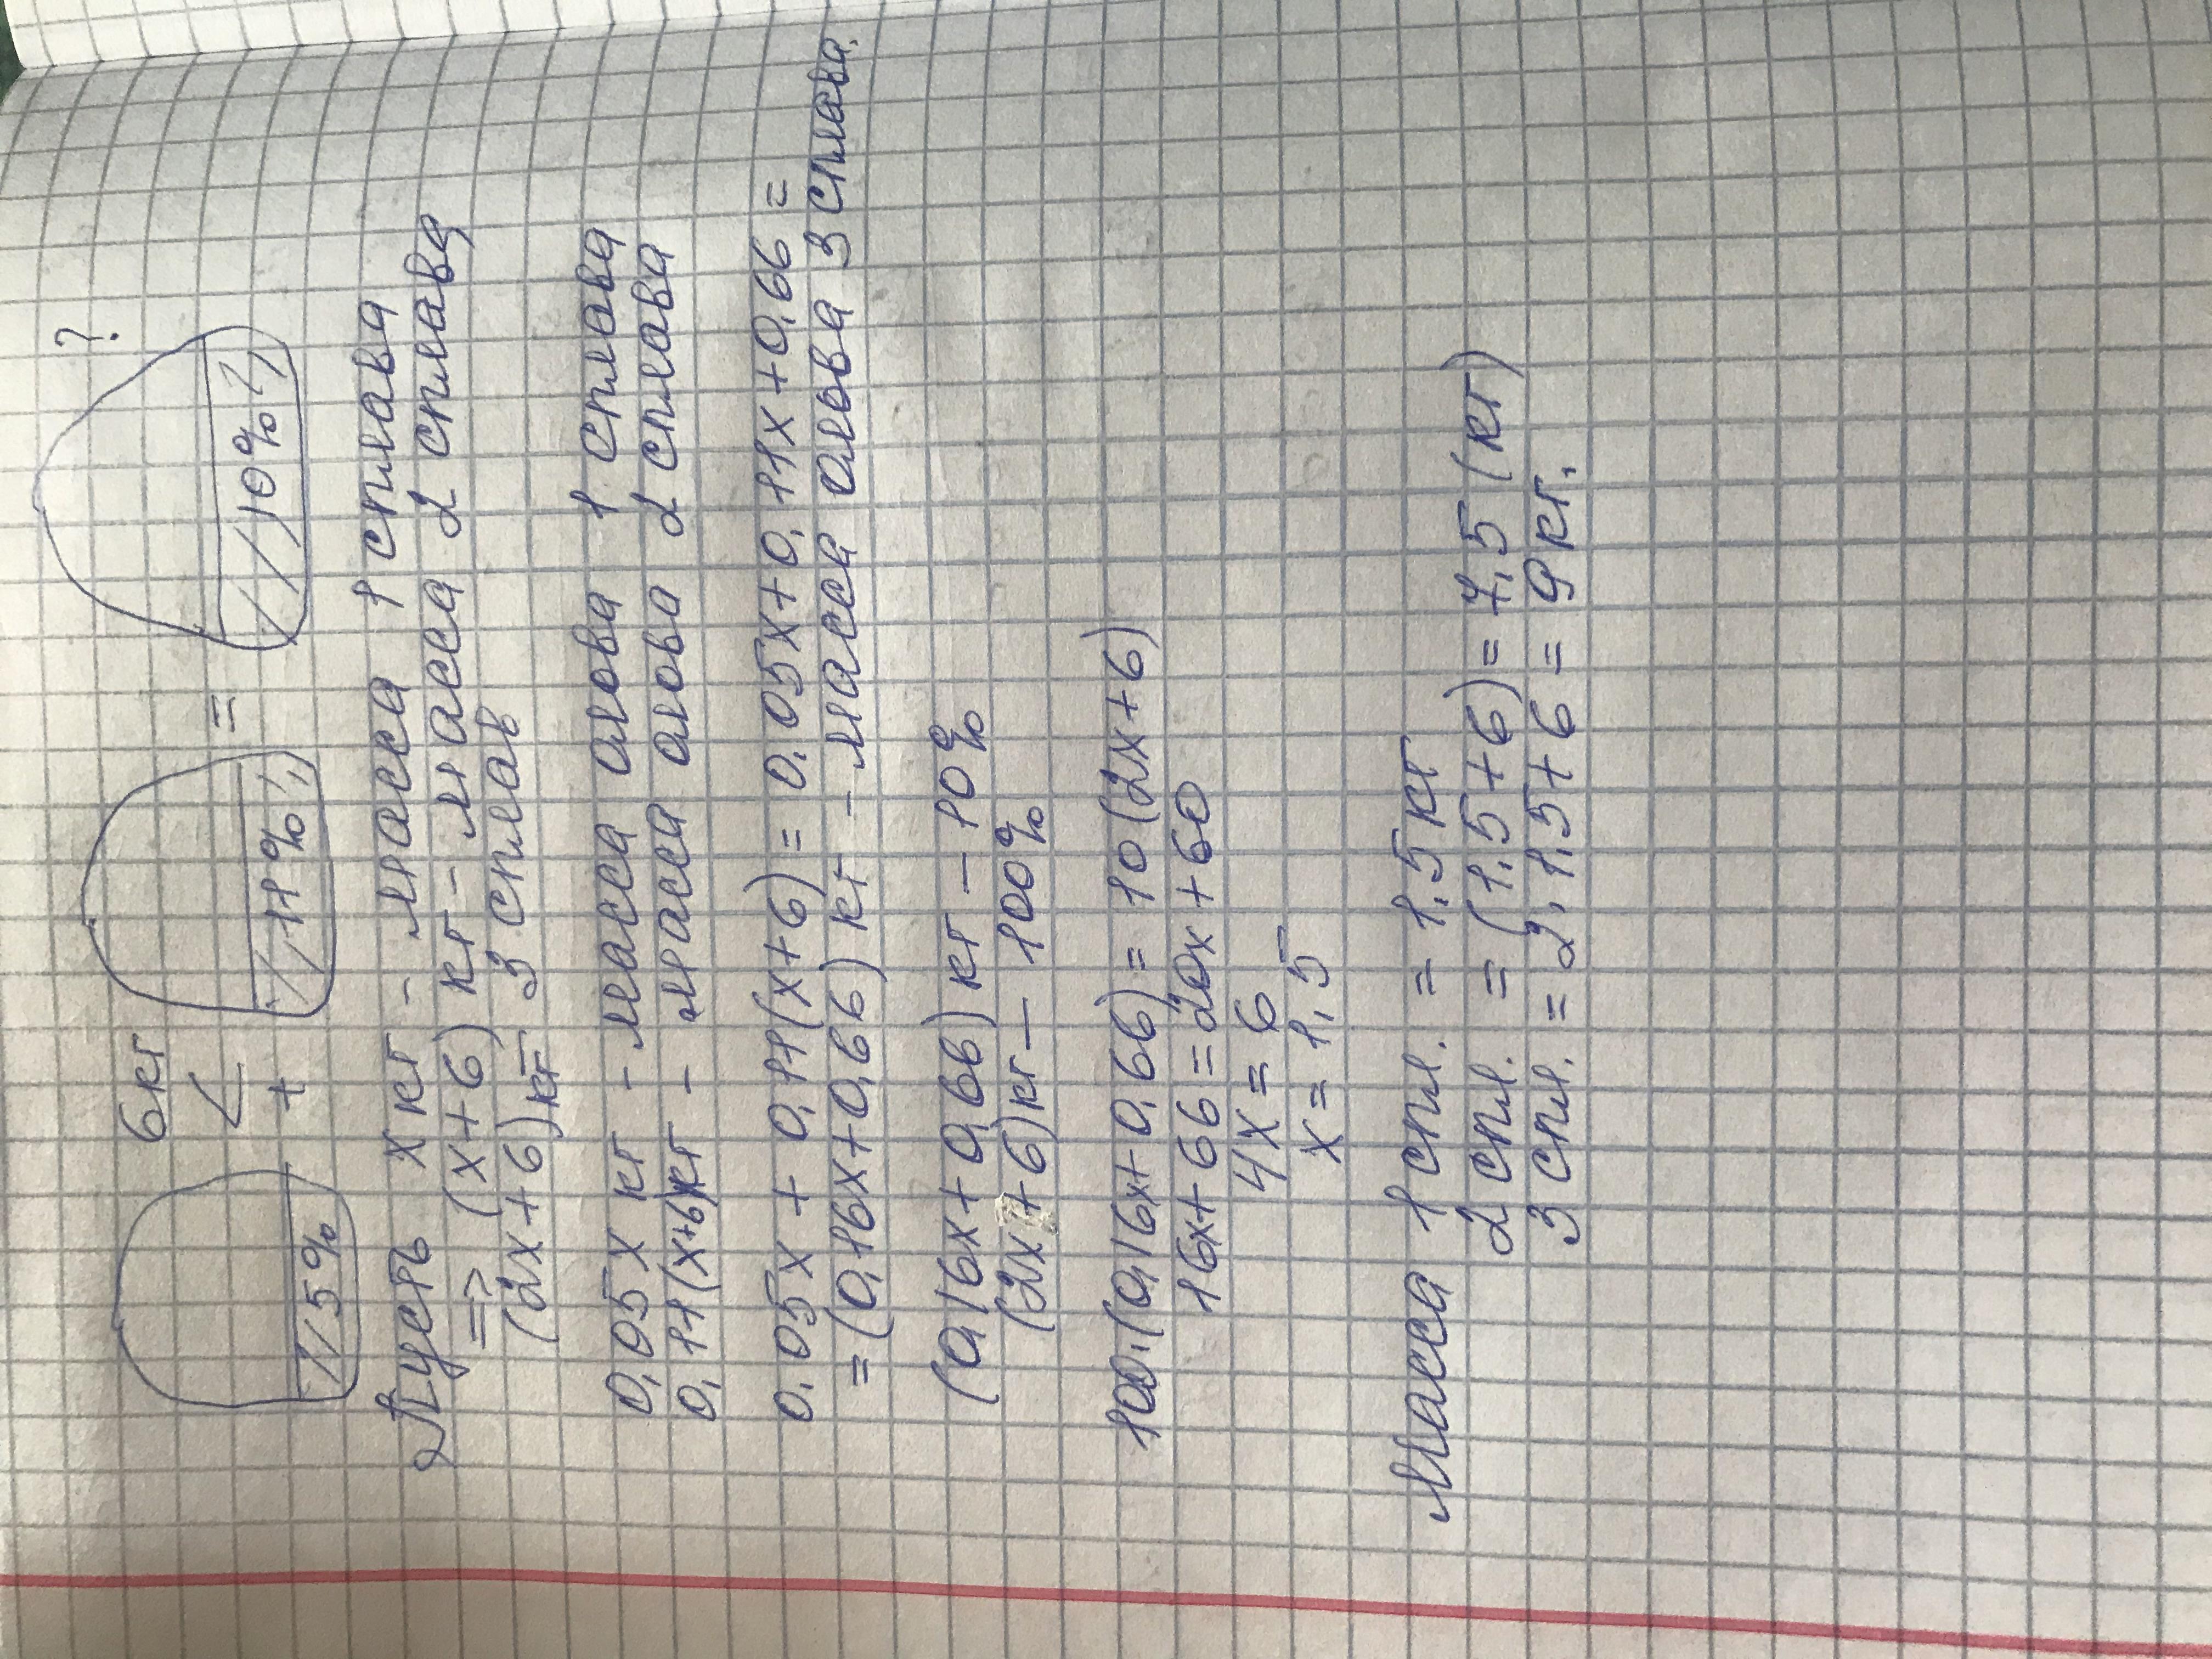 6кг ?
<
5% + 11% = 10%
Пусть x кг - масса 1 сплава
=> (x+6) кг - масса 2 сплава
(2x+6) кг - 3 сплав
0,05x кг - масса олова 1 сплава
0,11(x+6)кг - масса олова 2 сплава
0,05x + 0,11(x+6) = 0,05x+0,11x+0,66 =
= (0,16x+0,66) кг - масса олова 3 сплава.
(0,16x+0,66) кг — 10%
(2x+6)кг — 100%
100·(0,16x+0,66) = 10(2x+6)
16x+66=20x+60
4x=6
x=1,5
Масса 1 спл. = 1,5 кг
2 спл. = (1,5+6)=7,5 (кг)
3 спл. = 2·1,5+6 = 9 кг.